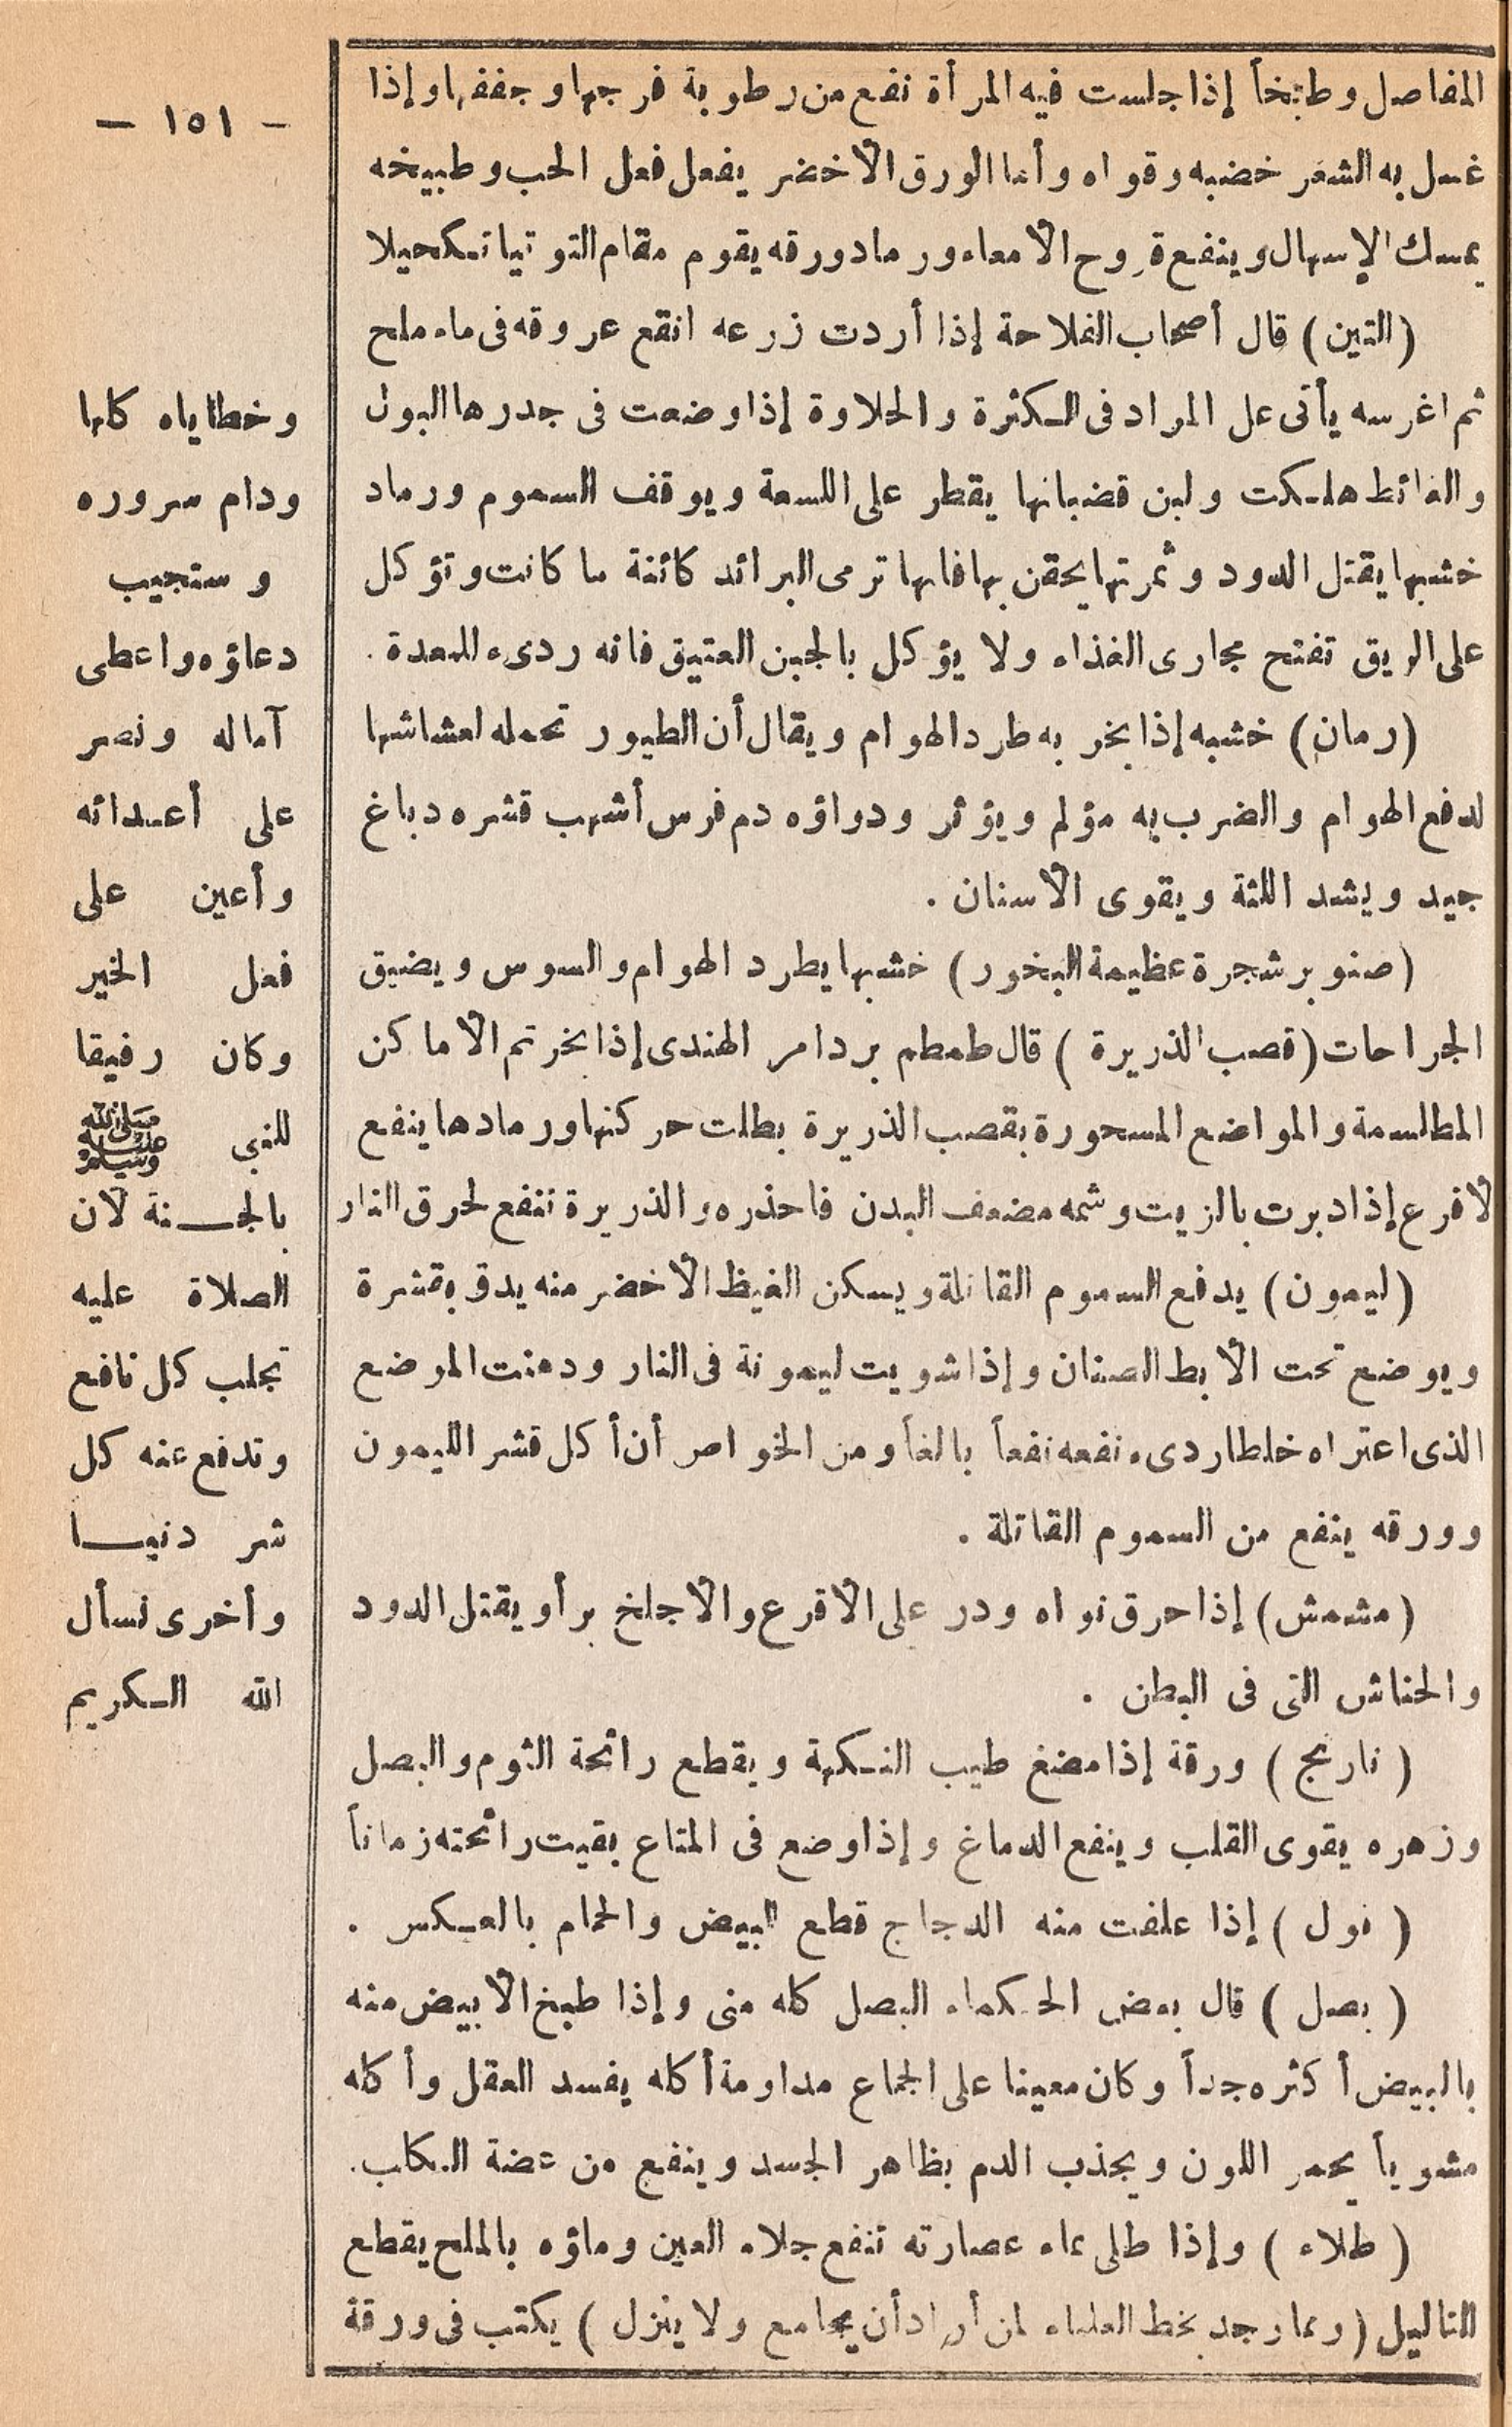 المفاصل وطبخاً إذا جلست فيه المرأة نفع من رطوبة فرجها وجففها وإذا
غسل به الشعر خضبه وقواه وأما الورق الأخضر يفعل فعل الحب وطبيخه
يمسك الإسهال وينفع قروح الأمعاء ورماد ورقه يقوم مقام التوتيا تكحيلا
(التين) قال أصحاب الفلاحة إذا أردت زرعه انقع عروقه فى ماء ملح
ثم اغرسه يأتى عل المراد فى الكثرة والحلاوة إذا وضعت فى جدرها البول
والغائط هلكت ولبن قضبانها يقطر على اللسعة ويوقف السموم ورماد
خشبها يقتل الدود وثمرتها يحقن بها فانها ترمى البرائد كائنة ما كانت وتؤكل
على الريق تفتح مجارى الغذاء ولا يؤكل بالجبن العتيق فانه ردىء للمعدة .
(رمان) خشبه إذا بخر به طرد الهوام ويقال أن الطيور تحمله لعشاشها
لدفع الهوام والضرب به مؤلم ويؤثر ودواؤه دم فرس أشهب قشره دباغ
جيد ويشد اللثة ويقوى الأسنان .
(صنوبر شجرة عظيمة البخور) خشبها يطرد الهوام والسوس ويضيق
الجراحات (قصب الذريرة) قال طمطم بردامر الهندى إذا بخرتم الأماكن
المطلسمة والمواضع المسحورة بقصب الذريرة بطلت حركتها ورمادها ينفع
لاقرع إذا دبرت بالزيت وشمه مضعف البدن فاحذره والذريرة تنفع لحرق النار
(ليمون) يدفع السموم القاتلة ويسكن الغيظ الأخضر منه يدق بقشرة
ويوضع تحت الأبط الصنان وإذا شويت ليمونة فى النار ودهنت الموضع
الذى اعتراه خلطا ردىء نفعه نفعاً بالغاً ومن الخواص أن أكل قشر الليمون
وورقه ينفع من السموم القاتلة .
(مشمش) إذا حرق نواه ودر على الأقرع والأجلخ برأ ويقتل الدود
والحناش التى فى البطن .
(نارنج) ورقة إذا مضغ طيب النكهة ويقطع رائحة الثوم والبصل
وزهره يقوى القلب وينفع الدماغ وإذا وضع فى المتاع بقيت رائحته زماناً
(فول) إذا علفت منه الدجاج قطع البيض والحمام بالعكس .
(بصل) قال بعض الحكماء البصل كله منى وإذا طبخ الأبيض منه
بالبيض أكثره جداً وكان معينا على الجماع مداومة أكله يفسد العقل وأكله
مشوياً يحمر اللون ويجذب الدم بظاهر الجسد وينفع من عضة الكلب.
(طلاء) وإذا طلى بماء عصارته تنفع جلاء العين وماؤه بالملح يقطع
الثاليل (ومما وجد بخط العلماء لمن أراد أن يجامع ولا ينزل) يكتب فى ورقة
- ١٥١ -
وخطاياه كلها
ودام سروره
وستجيب
دعاؤه واعطى
آماله ونصر
على أعدائه
وأعين على
فعل الخير
وكان رفيقا
للنبى ﷺ
بالجنة لأن
الصلاة عليه
تجلب كل نافع
وتدفع عنه كل
شر دنيا
وأخرى نسأل
الله الكريم